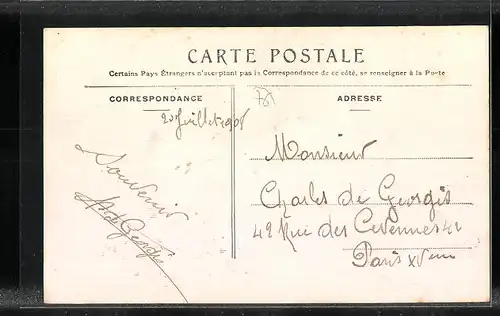 CARTE POSTALE
Certains Pays Étrangers n'acceptant pas la Correspondance de ce côté, se renseigner à la Poste
CORRESPONDANCE
ADRESSE
20 Juillet 1908
Souvenir
Monsieur
Charles de Georgis
42 Rue des Cevennes 42
Paris XVeme